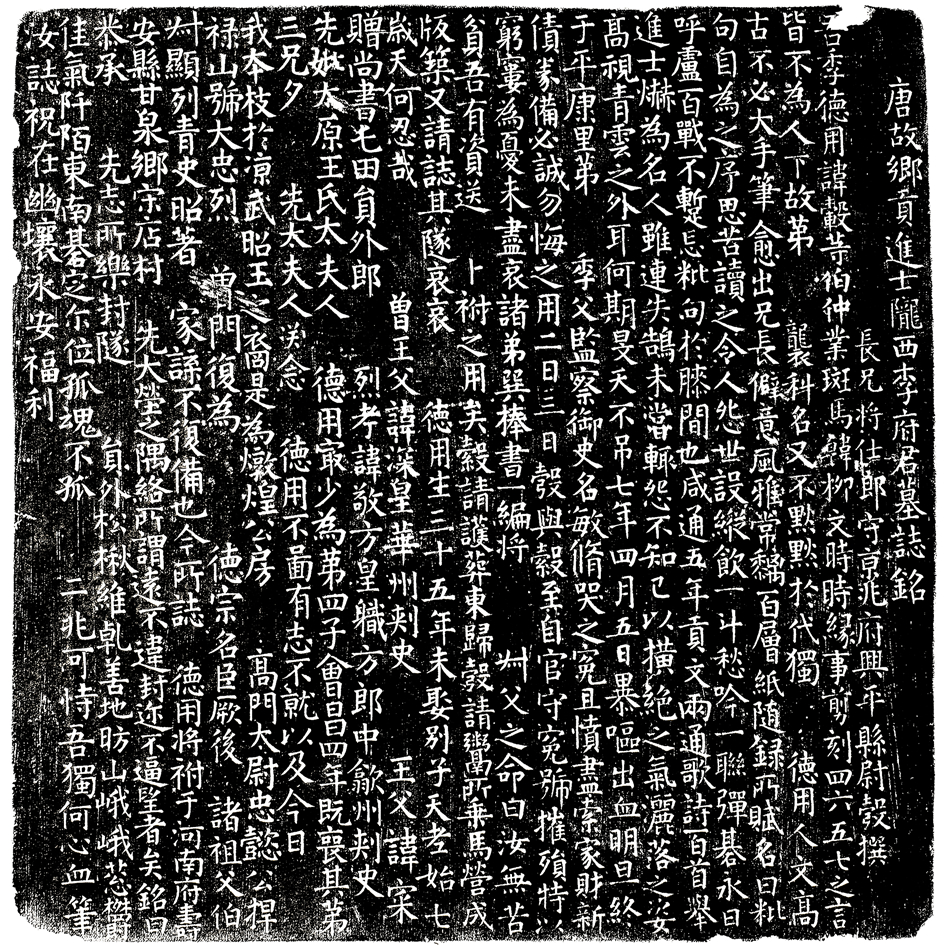 唐故鄉貢進士隴西李府君墓誌銘
長兄將仕郎守京兆府興平縣尉瑴撰
吾李德用諱瑴等伯仲業班馬韓柳文時時緣事剪刻四六五七之言
皆不為人下故第 襲科名又不默默於代獨 德用人文高
古不必大手筆僉出兄長僻意風雅常黏百層紙隨錄所賦名曰粃
句自為之序思苦讀之令人怨世設縱飲一斗愁吟一聯彈碁永日
呼盧百戰不蹔忘粃句於膝間也咸通五年貢文兩通歌詩百首舉
進士爀為名人雖連失鵠未嘗輒怨不知己以橫絕之氣麗落之姿
高視青雲之外耳何期旻天不吊七年四月五日暴嘔出血明旦終
于平康里第 季父監察御史名敏脩哭之冤且憤盡索家財新
債家備必誠勿悔之用二日三日瑴與穀至自官守冤號摧殞特以
窮窶為憂未盡哀諸弟巽捧書一編將 卅父之命曰汝無苦
貧吾有資送 卜祔之用矣穀請護葬東歸瑴請鬻所乘馬營成
版築又請誌其隧哀哀 德用生三十五年未娶別子天孝始七
歲天何忍哉 曾王父諱深皇華州刺史 王父諱寀
贈尚書屯田員外郎 烈考諱敬方皇職方郎中歙州刺史
先妣太原王氏太夫人 德用寂少為第四子會昌四年既喪其第
三兄夕 先大夫人 念 德用不啚有志不就以及今日
我本枝於涼武昭王之裔是為燉煌公房 高門太尉忠懿公捍
祿山號大忠烈 曾門復為 德宗名臣厥後 諸祖父伯
顯列青史昭著 家諜不復備也今所誌 德用將祔于河南府壽
安縣甘泉鄉宗店村 先大塋之隅絡所謂遠不違封迩不逼塋者矣銘曰
恭承 先志所樂封隧 負外松楸維乹善地昉山峨峨悲欝
佳氣阡陌東南碁之尔位孤魂不孤 二兆可恃吾獨何心血筆
汝誌祝在幽壤永安福利